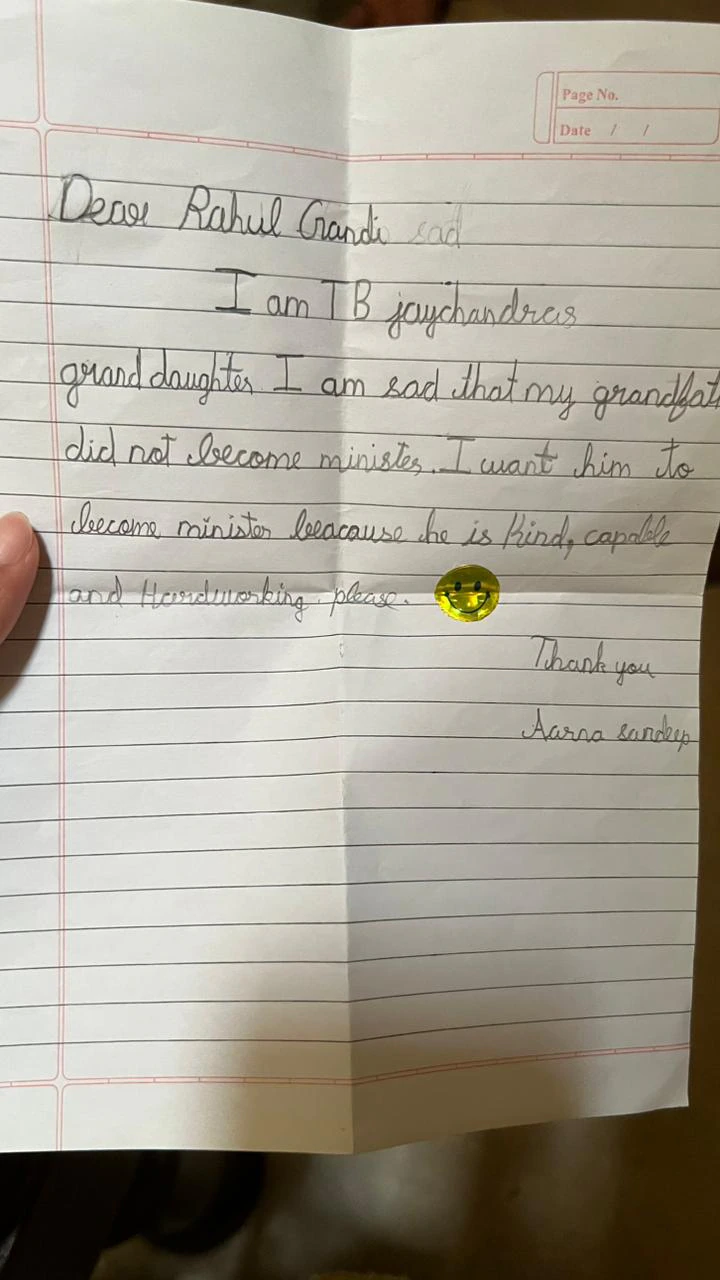 Page No.
Date / /
Dear Rahul Gandi sad
I am TB jaychandras
grand daughter I am sad that my grandfat
did not become minister. I want him to
become minister beacause he is Kind, capable
and Hardworking. please.
Thank you
Aarna sandeep